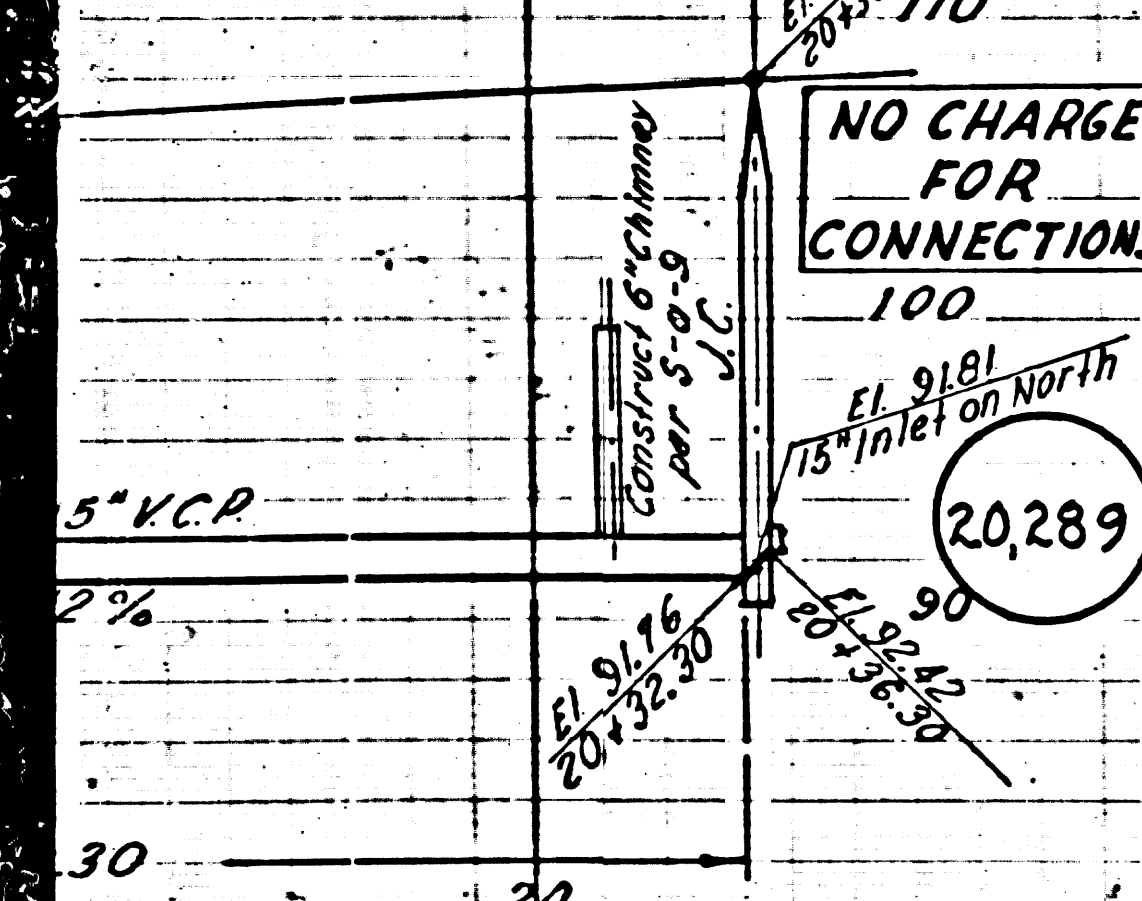 El.
110
NO CHARGE
FOR
CONNECTION
Construct 6" Chimney
per S-a-9
J.C.
100
El. 91.81
15" Inlet on North
5" V.C.P.
20,289
2 %
90
El. 91.96
20 + 32.30
El. 92.42
20 + 36.30
.30